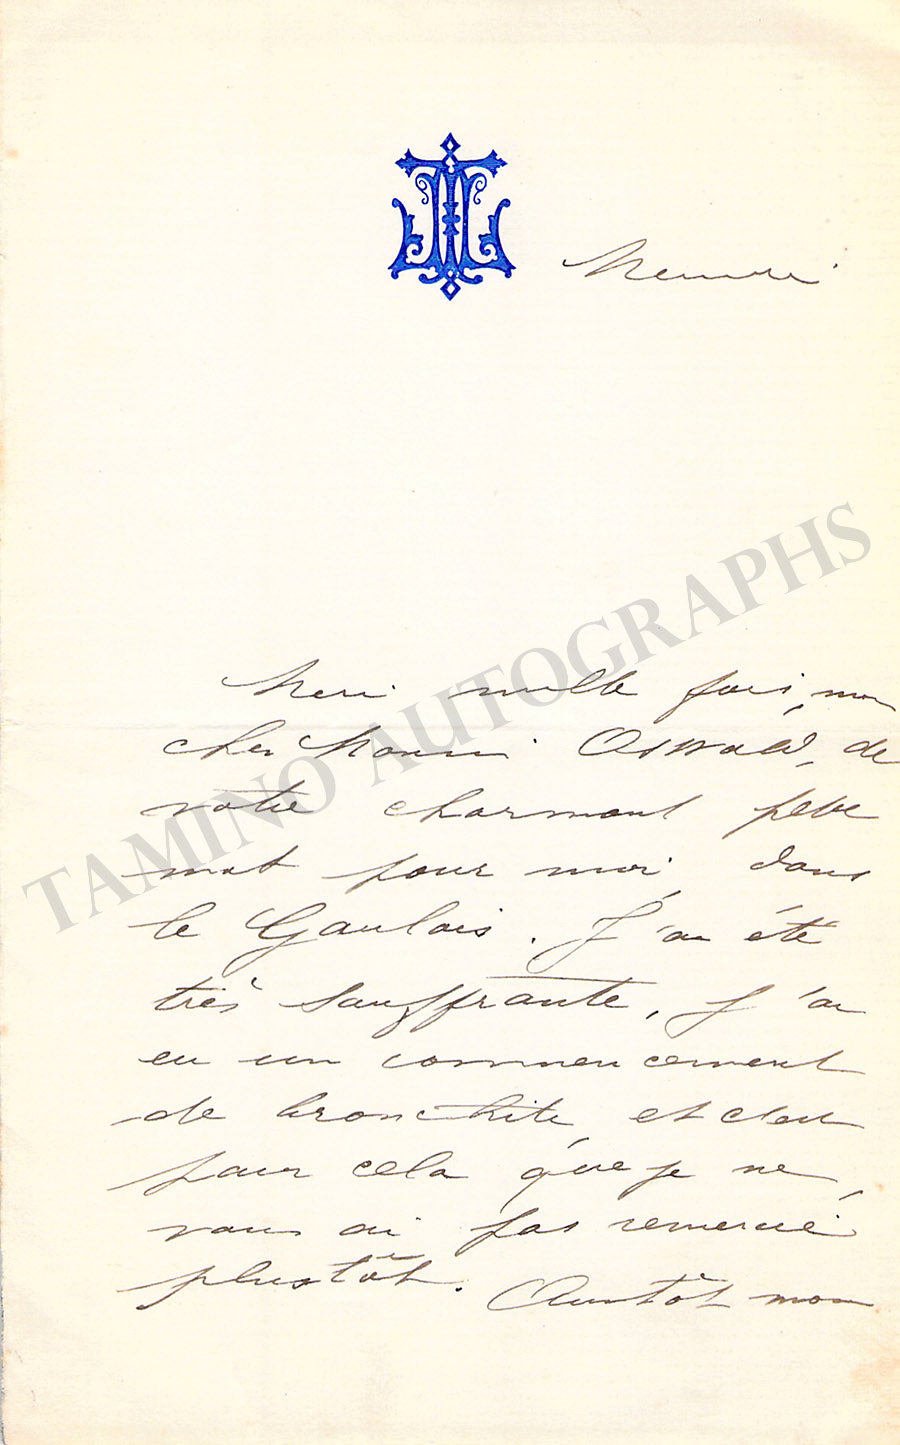 Mercredi
Merci mille fois, mon
cher Monsieur Oswald, de
votre charmant petit
mot pour moi, dans
le Gaulois. J'ai été
très souffrante, J'ai
eu un commencement
de bronchite, et c'est
pour cela que je ne
vous ai pas remercié
plustôt. Aussitôt mon
TAMINO AUTOGRAPHS